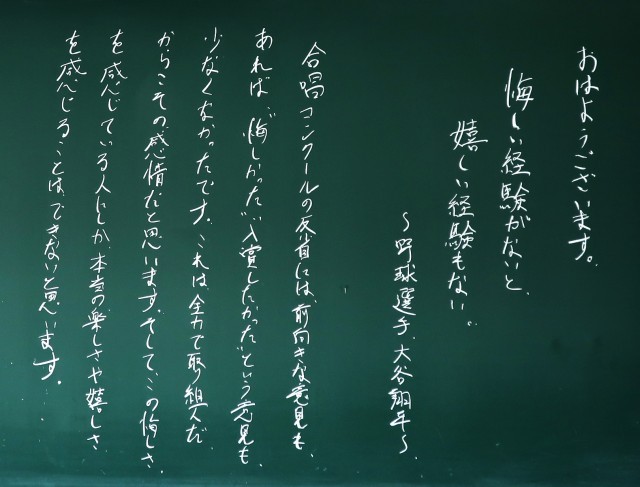 おはようございます。
悔しい経験がないと、
嬉しい経験もない。
～野球選手、大谷翔平～
合唱コンクールの反省には、前向きな意見も
あれば、"悔しかった""入賞したかった"という意見も、
少なくなかったです。これは、全力で取り組んだ
からこその感情だと思います。そして、この悔しさ
を感じている人しか、本当の楽しさや嬉しさ
を感じることはできないと思います。